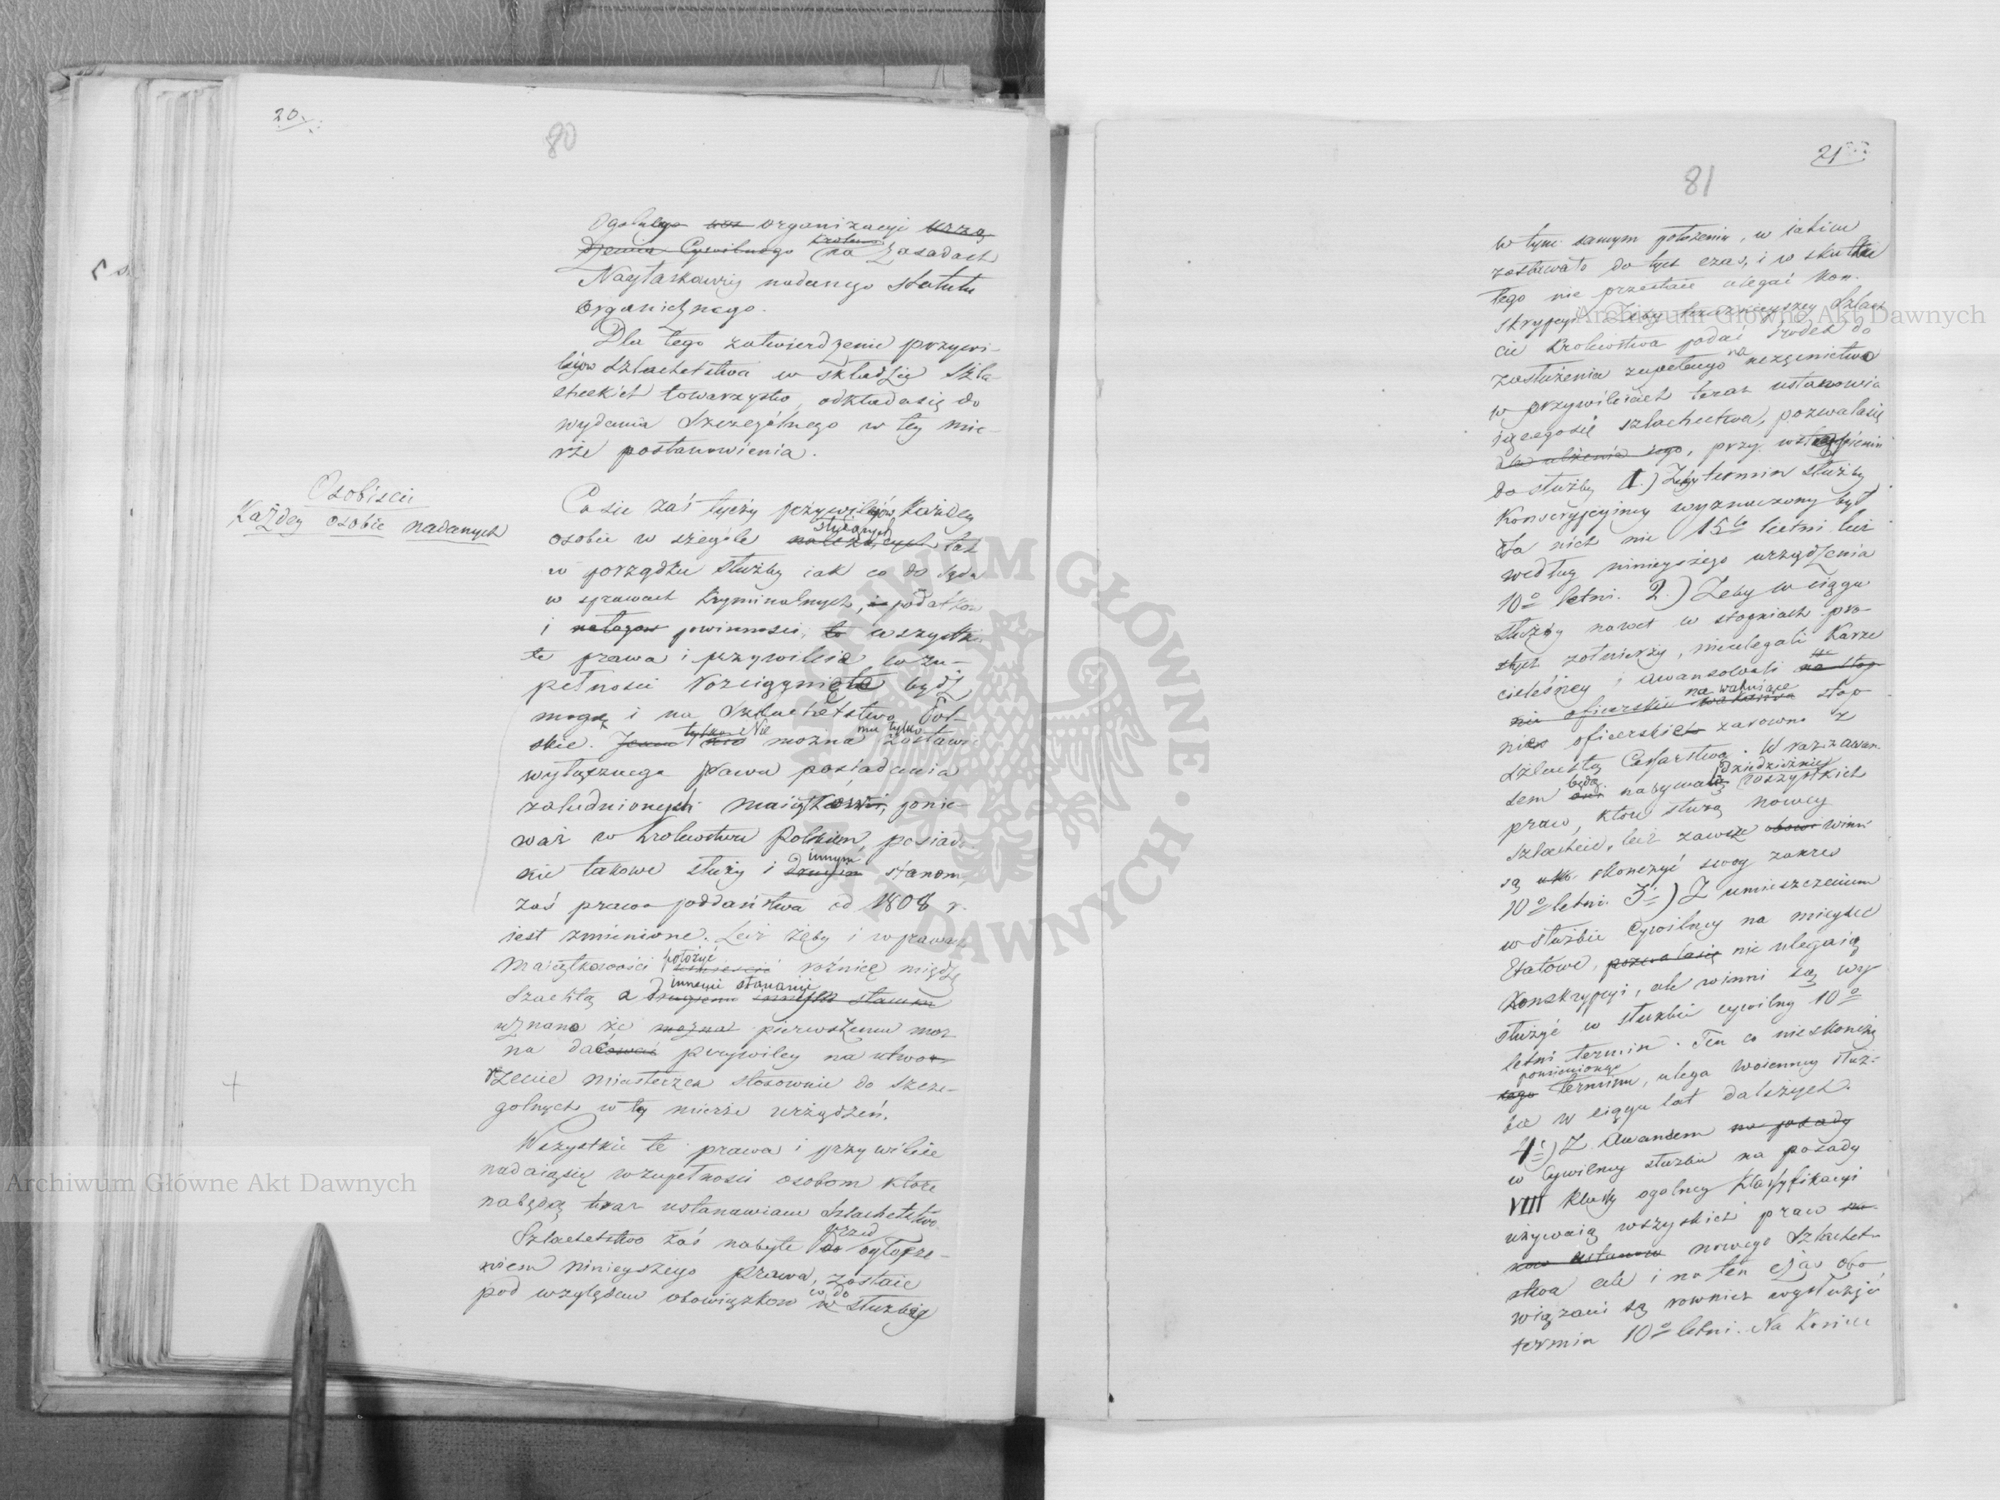 20.
80
ogolnego organizacyi urzą
dzenia Cywilnego na zasadach
Nayłaskawiey nadanego statutu
organicznego.
Dla tego zatwierdzenie przywi-
lejów Szlachetstwa w składzie Szla-
checkich towarzystw, odkłada się do
wydania szczególnego w tey mie-
rze postanowienia.
Osobiscie
Każdey osobie nadanych
Co sie zaś tyczy przywilejów, każdey
służących
osobie w szególe należących tak
w porządku służby iak co do sądu
w sprawach kryminalnych, i podatków
i nałogow powinnosci, to wszystkie
te prawa i przywileia w zu-
pełnosci rozciągnięte bydź
mogą i na Szlachetstwo Pol-
tylko Nie mu tylko
skie. można zostawić
wyłącznego prawa posiadania
zaludnionych maiątkow, ponie-
waż w Krolewstwie Polskiem, posiada-
innym
nie takowe służy i drugim stanom,
zaś prawo poddaństwa od 1808 r.
jest zmienione. Lecz żeby i w prawach
położyć
maiątkowości różnicę między
innemi stanami
szlachtą a
uznano że można pierwszemu moż
na dać przywiley na utwo-
rzenie miasteczek stosownie do szcze-
golnych w tey mierze urządzeń.
Wszystkie te prawa i przywileie
nadaiąsię w zupełnosci osobom które
nabędą teraz ustanawiane Szlachetstwo.
przed
Szlachetstwo zaś nabyte do ogłosze-
niem ninieyszego prawa, zostaie
co do
pod względem obowiązkow w służbie
21
81
w tym samym położeniu, w iakiem
zostawało do tych czas, i w skutku
tego nie przestaie ulegać kon-
skrypcyi. Żeby teraznieyszey Szlach
cie Krolewstwa podać srodek do
na
zasłużenia zupełnego uczęsnictwa
w przywileiach teraz ustanowia
iącegosię szlachectwa, pozwalasię
dla ulżenia iego, przy wstąpieniu
do służby 1.) Żeby termin służby
konscrypcyiney wyznaczony był
dla nich nie 15to letni lecz
według ninieyszego urządzenia
10o letni. 2.) Żeby w ciągu
służby nawet w stopniach pro-
stych żołnierzy, nieulegali karze
cielesney i awansowali na stop
na wakuiące
nie oficerskie stop
nie oficerskie zarowno z
szlachtą Cesarstwa. W raz z awan-
będą dziedzicznie
sem używali wszystkich
praw, które służą nowey
Szlachcie, lecz zawsze winni
są skonczyć swoy zakres
10o letni. 3.) Z umieszczeniem
w służbie cywilney na mieysce
Etatowe, pozwalasię nie ulegaią
Konskrypcyi, ale winni są wy
służyć w służbie cywilney 10o
letni termin. Ten co nieskończy
pomienionego
tego terminu, ulega woienney służ-
bie w ciągu lat dalszych.
4.) Z Awansem na posady
w Cywilney służbie na posady
VIII klassy ogolney klassyfikacyi
używaią wszyskich praw na-
nowego Szlachet-
stwa ale i na ten czas obo-
wiązani są rownież wysłużyć
termin 10o letni. Na koniec
Archiwum Główne Akt Dawnych
Archiwum Główne Akt Dawnych
ARCHIWUM GŁÓWNE AKT DAWNYCH